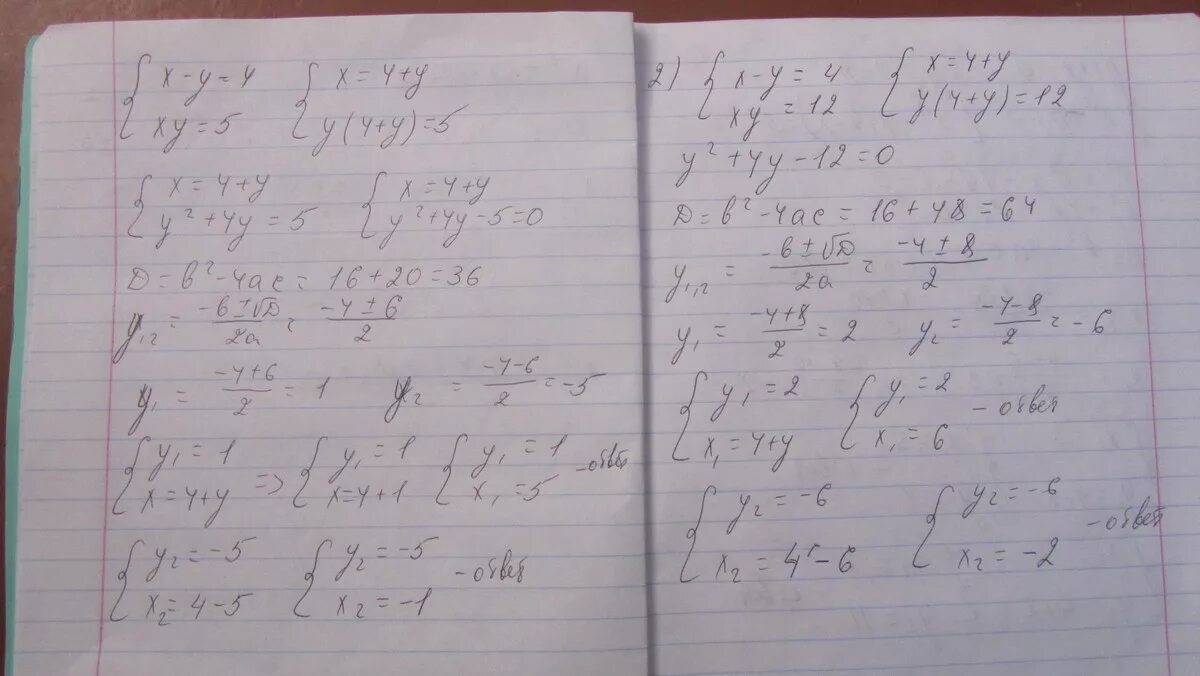 { x - y = 4 { x = 4+y
{ xy = 5 { y(4+y) = 5
{ x = 4+y { x = 4+y
{ y² + 4y = 5 { y² + 4y - 5 = 0
D = b² - 4ac = 16 + 20 = 36
y₁,₂ = (-b ± √D)/2a = (-4 ± 6)/2
y₁ = (-4+6)/2 = 1 y₂ = (-4-6)/2 = -5
{ y₁ = 1 { y₁ = 1 { y₁ = 1
{ x = 4+y => { x = 4+1 { x₁ = 5 - ответ
{ y₂ = -5 { y₂ = -5
{ x₂ = 4-5 { x₂ = -1 - ответ
2) { x - y = 4 { x = 4+y
{ xy = 12 { y(4+y) = 12
y² + 4y - 12 = 0
D = b² - 4ac = 16 + 48 = 64
y₁,₂ = (-b ± √D)/2a = (-4 ± 8)/2
y₁ = (-4+8)/2 = 2 y₂ = (-4-8)/2 = -6
{ y₁ = 2 { y₁ = 2
{ x₁ = 4+y { x₁ = 6 - ответ
{ y₂ = -6 { y₂ = -6
{ x₂ = 4 - 6 { x₂ = -2 - ответ